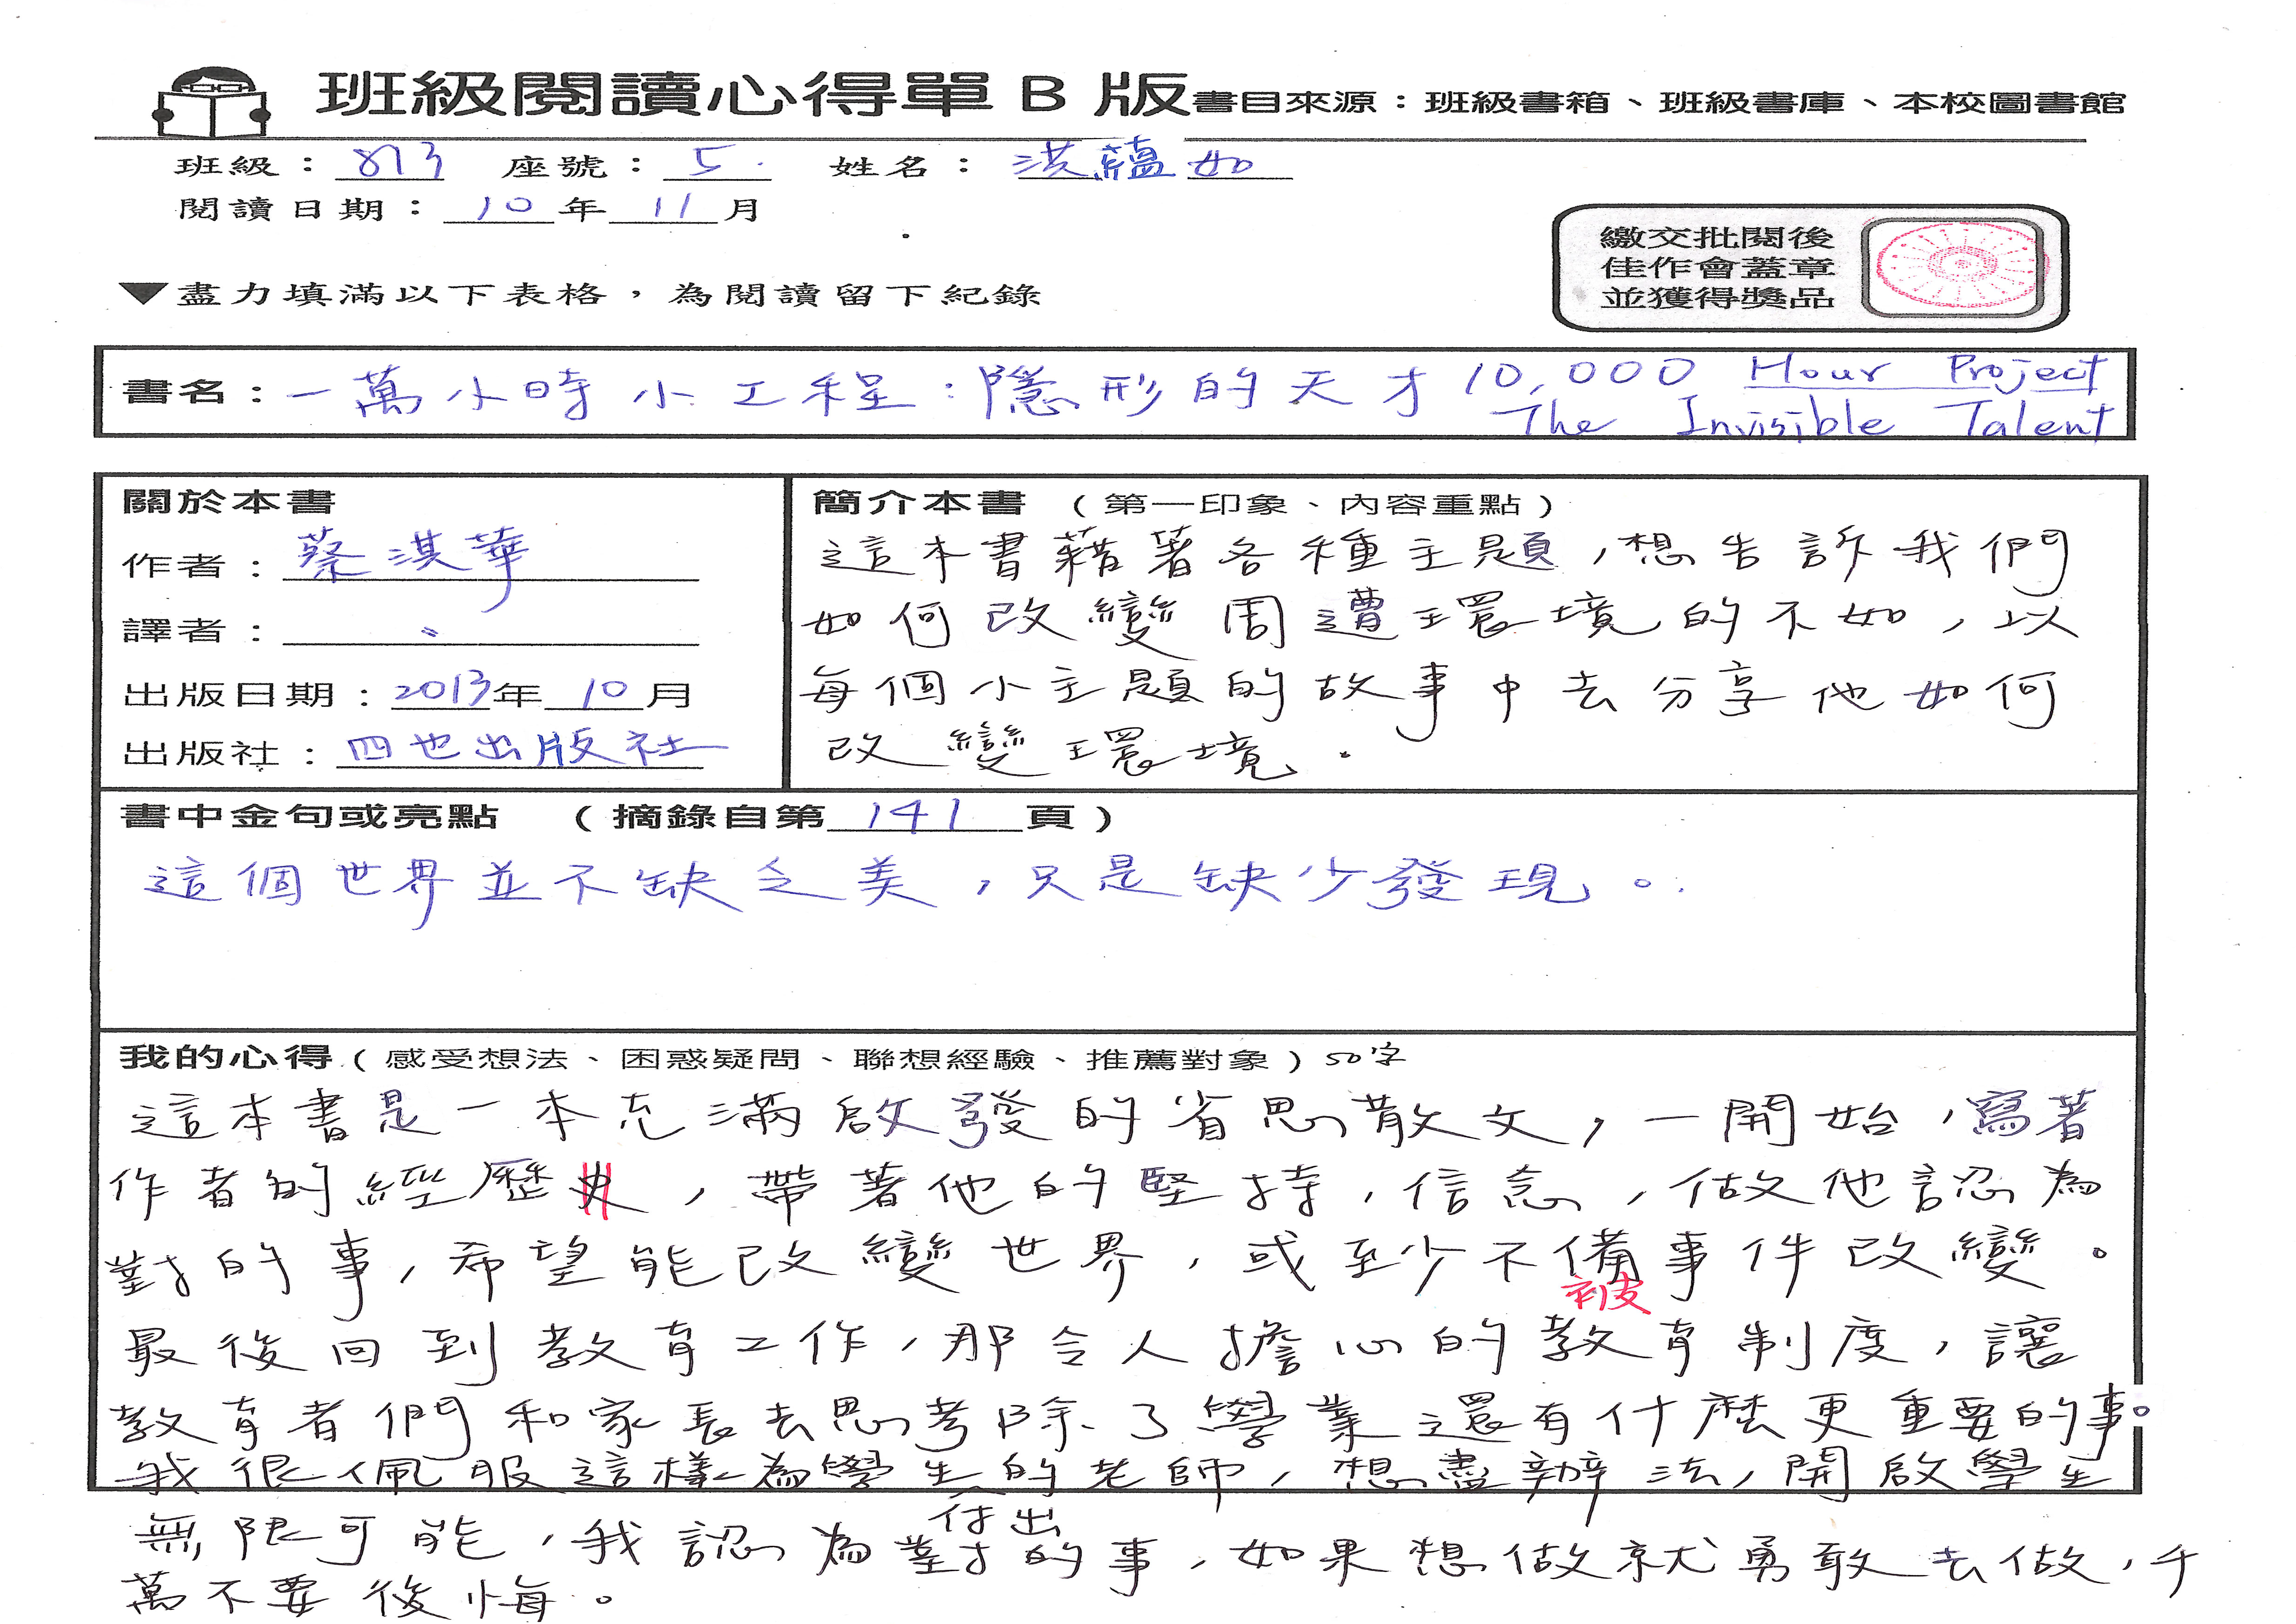 班級閱讀心得單 B 版書目來源：班級書箱、班級書庫、本校圖書館
班級：813 座號：5. 姓名：洪蘊如
閱讀日期：10年11月
繳交批閱後
佳作會蓋章
並獲得獎品
▼盡力填滿以下表格，為閱讀留下紀錄
書名：一萬小時小工程：隱形的天才 10,000 Hour Project
The Invisible Talent
關於本書
作者：蔡淇華
譯者：
出版日期：2013年10月
出版社：四也出版社
簡介本書（第一印象、內容重點）
這本書藉著各種主題，想告訴我們
如何改變周遭環境的不如，以
每個小主題的故事中去分享他如何
改變環境.
書中金句或亮點（摘錄自第141頁）
這個世界並不缺乏美，只是缺少發現。
我的心得（感受想法、困惑疑問、聯想經驗、推薦對象）50字
這本書是一本充滿啟發的省思散文，一開始，寫著
作者的經歷史，帶著他的堅持，信念，做他認為
對的事，希望能改變世界，或至少不備事件改變。
被
最後回到教育工作，那令人擔心的教育制度，讓
教育者們和家長去思考除了學業還有什麼更重要的事。
我很佩服這樣為學生的老師，想盡辦法，開啟學生
付出
無限可能，我認為對的事，如果想做就勇敢去做，千
萬不要後悔。